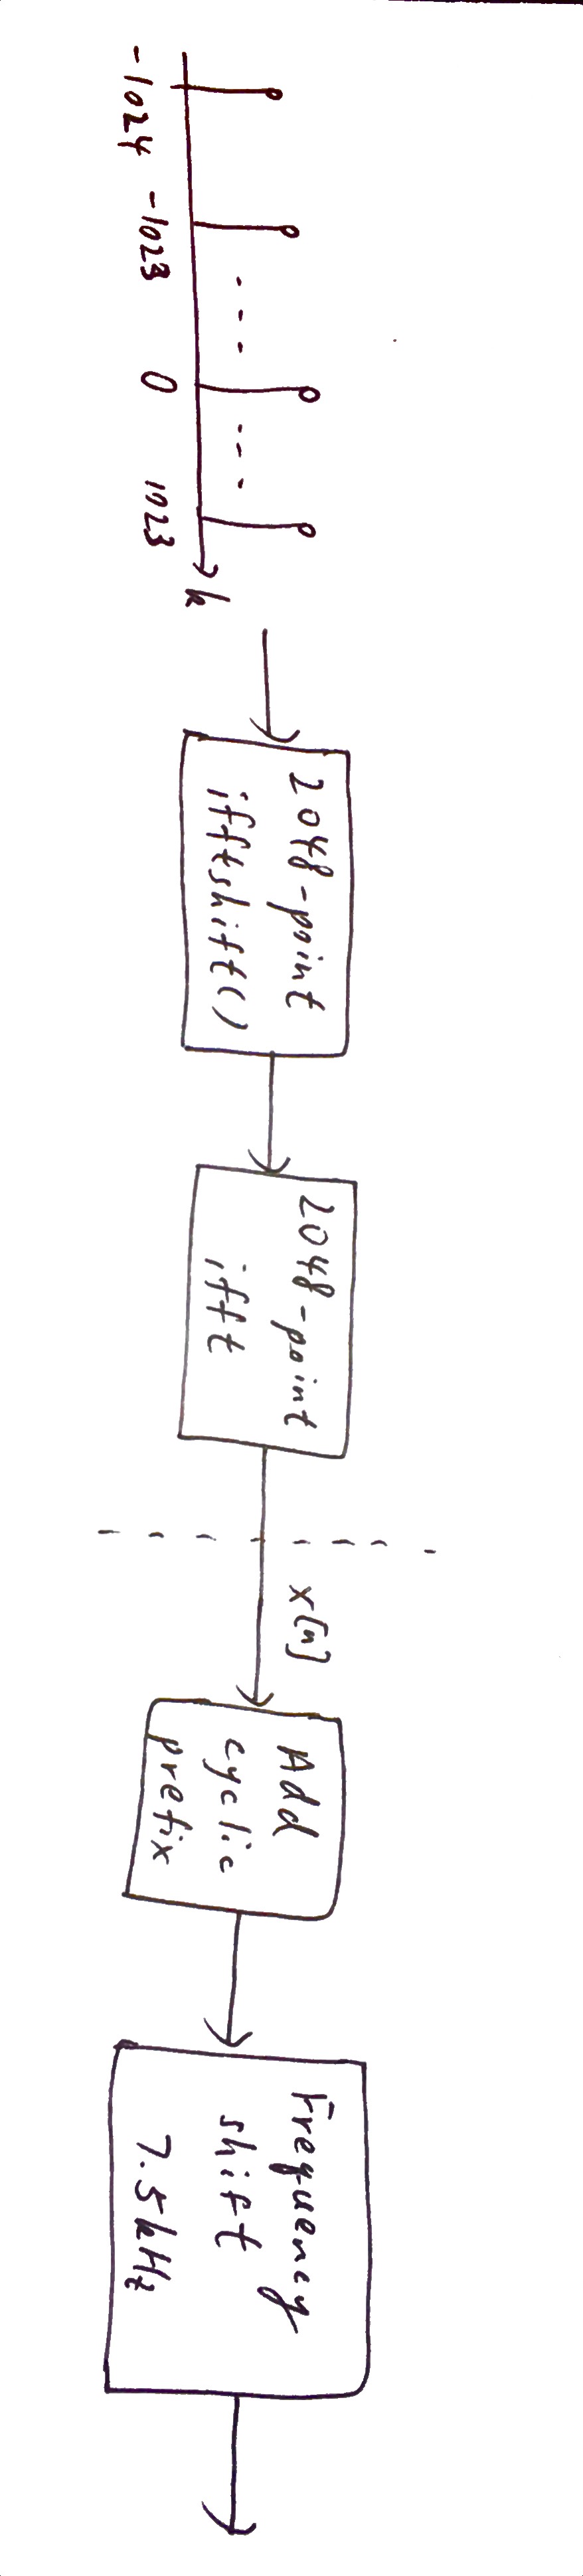 -1024 -1023 .... 0 .... 1023 k
2048-point
ifftshift()
2048-point
ifft
x[n]
Add
cyclic
prefix
Frequency
shift
7.5kHz